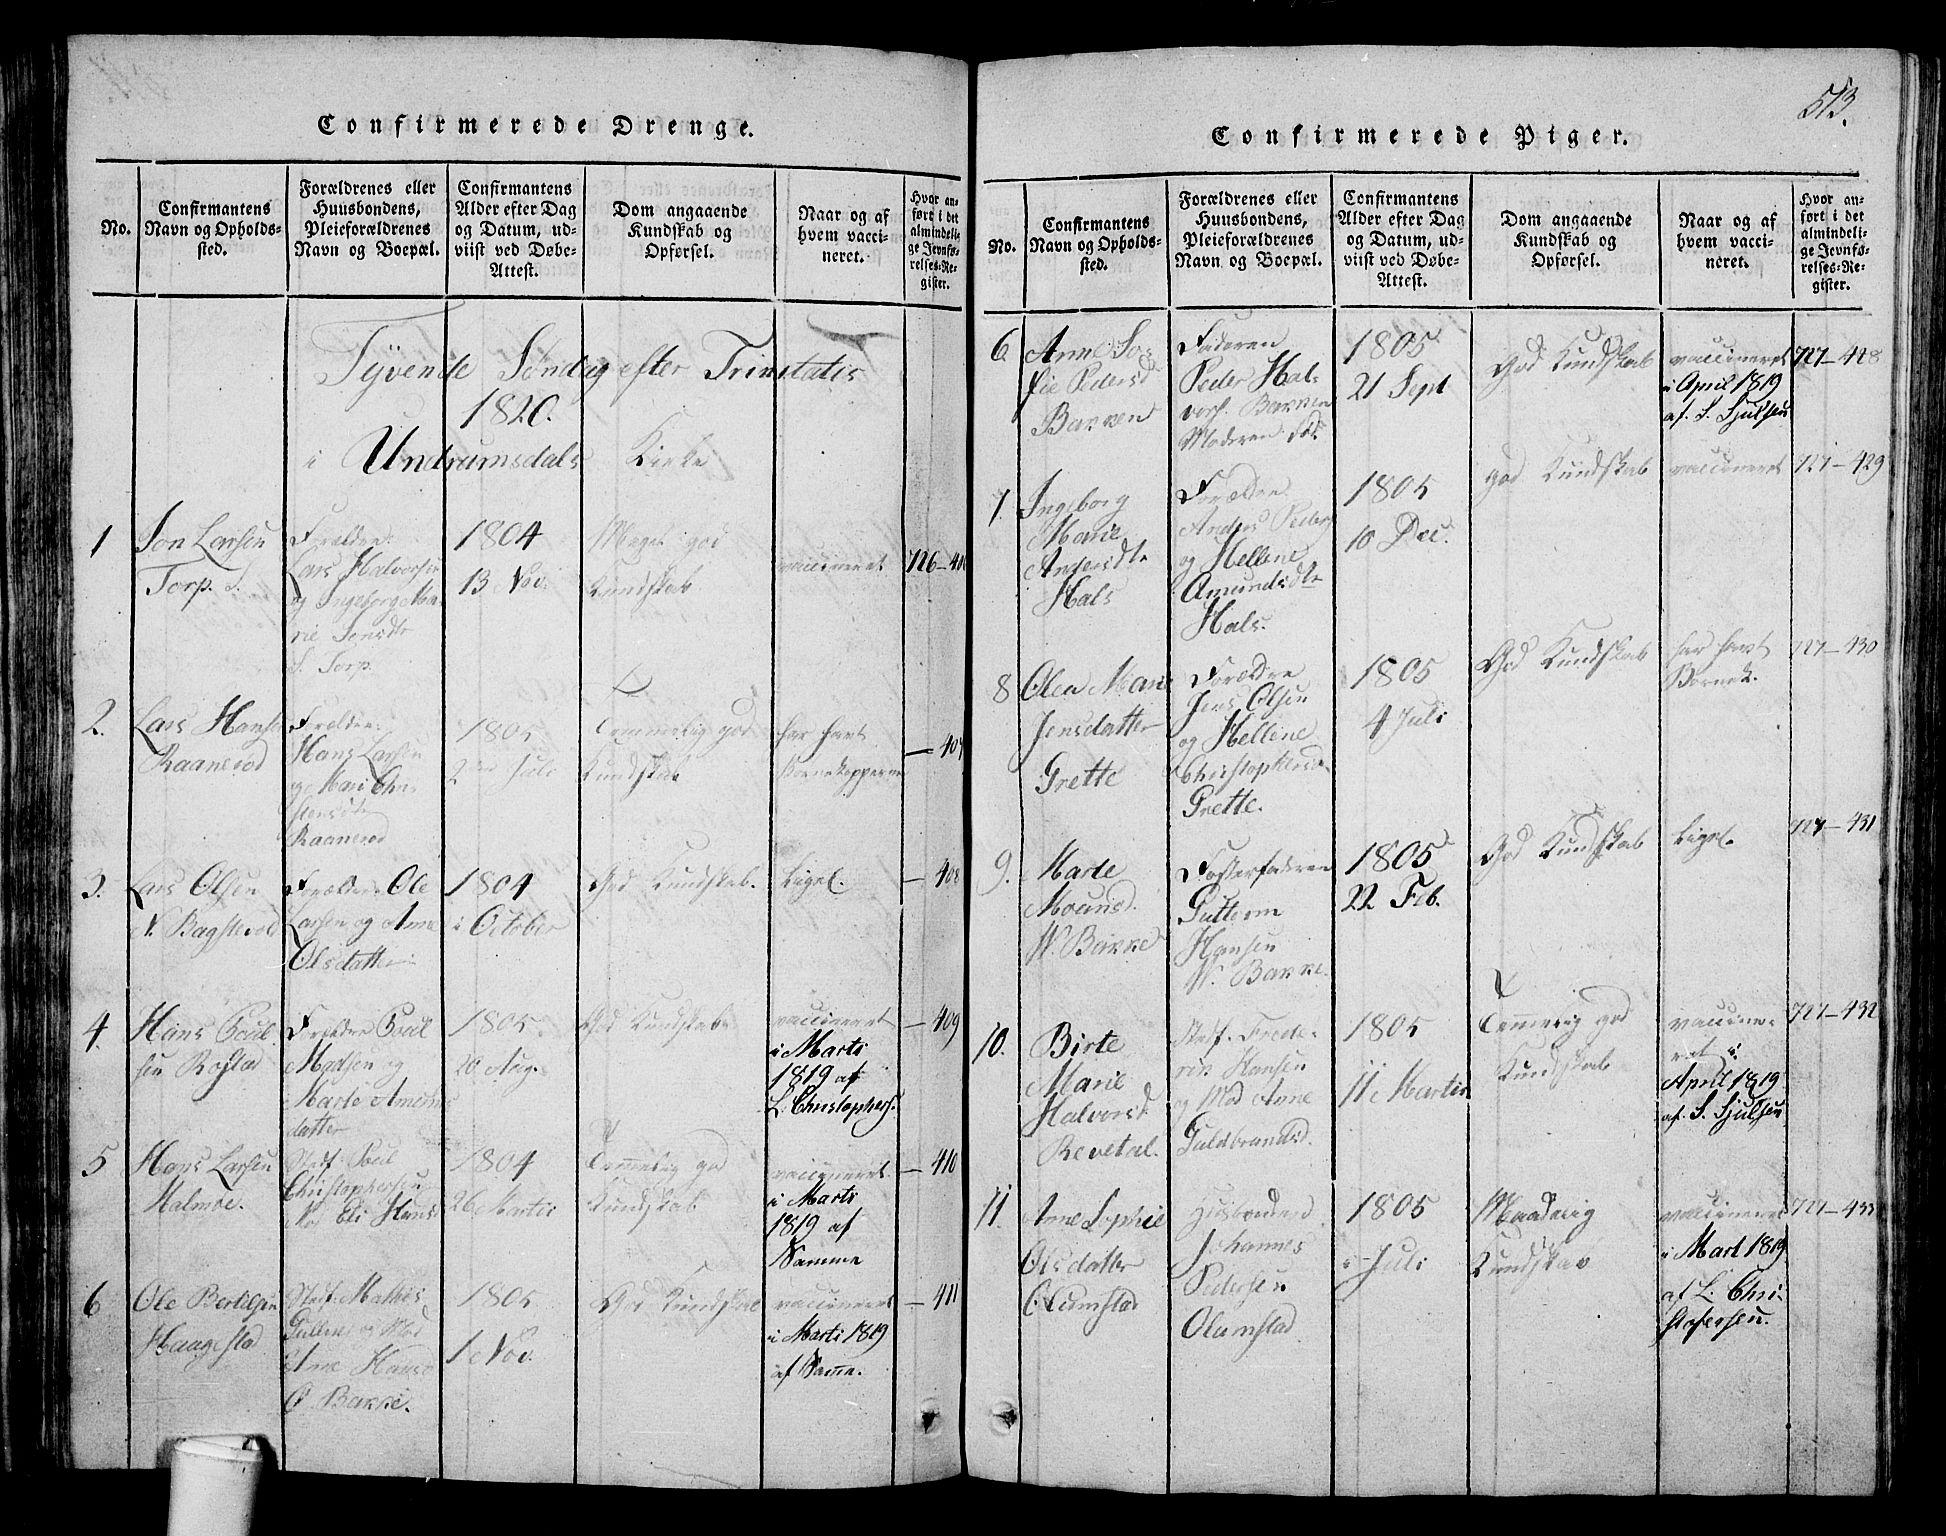 Confirmerede Drenge.
No.
Confirmantens
Navn og Opholds-
sted.
Forældrenes eller
Huusbondens,
Pleieforældrenes
Navn og Boepæl.
Confirmantens
Alder efter Dag
og Datum, ud-
viist ved Døbe-
Attest.
Dom angaaende
Kundskab og
Opførsel.
Naar og af
hvem vacci-
neret.
Hvor an-
ført i det
almindeli-
ge Jevnfø-
relses-Re-
gister.
Tyvende Søndag efter Trinitatis
1820.
i Undrumsdals Kirke
1
Jon Larsen
Torp. S.
Forældre:
Lars Halvorsen
og Ingeborg Ma-
rie Jensdtr
S. Torp.
1804
13 Nov.
Meget god
Kundskab
vaccineret
726-
2.
Lars Hansen
Raanerød
Forældre:
Hans Larsen
og Mari Chri-
stensdtr
Raanerød
1805
2den Juli
Temmelig god
Kundskab
har havt
Børnekopperne
— 407
3.
Lars Olsen
N. Bagsterød
Forældre Ole
Larsen og Anne
Olsdatter
1804
i October
God Kundskab.
Ligel.
— 408
4.
Hans Poul-
sen Rostad
Forældre Poul
Madsen og
Marte
datter
1805
20 Aug.
God Kundskab
vaccineret
i Marts
1819 af
L. Christophers.
— 409
5
Hans Larsen
Malmøe.
Stef. Poul
Christophersen
Mod. Eli Hans
1804
26 Martii
Temmelig god
Kundskab
vaccineret
i Marts
1819 af
Samme
— 410
6
Ole Bertilsen
Haagestad
Stef. Mathis
Gullen og Mod
Ane Hansd
Ø. Bakke.
1805
1 Nov.
God Kundskab
vaccineret
i Marts 1819
af Samme.
— 411
513.
Confirmerede Piger.
No.
Confirmantens
Navn og Opholds-
sted.
Forældrenes eller
Huusbondens,
Pleieforældrenes
Navn og Boepæl.
Confirmantens
Alder efter Dag
og Datum, ud-
viist ved Døbe-
Attest.
Dom angaaende
Kundskab og
Opførsel.
Naar og af
hvem vacci-
neret.
Hvor an-
ført i det
almindeli-
ge Jevnfø-
relses-Re-
gister.
6
Anne So-
fie Pedersd
Bakken
Faderen
Peder Hal-
vors. Bakken
Moderen
1805
21 Sept
God Kundskab
vaccineret
i April 1819
af. S. Sjulsen
727-428
7.
Ingeborg
Marie
Andersdtr
Hals
Forældre
Anders Peders
og Hellene
Amundsdtr
Hals.
1805
10 Dec.
god Kundskab
vaccineret
727-429
8
Olea Marie
Jensdatter
Grette
Forældre
Jens Olsen
og Hellene
Christophersd.
Grette.
1805
4 Juli
God Kundskab
har havt
Børnek.
727-430
9.
Marte
Mounsd.
W. Bakke
Fosterfaderen
Guttorm
Hansen
W. Bakke.
1805
22 Feb.
God Kundskab
Ligel.
727-431
10.
Birte
Marie
Halvorsd.
Revetal.
Stef. Frede-
rik Hansen
og Mod Anne
Guldbrandsd.
1805
11 Martii
Temmelig god
Kundskab
vaccine-
ret i
April 1819
af. S. Sjulsen
727-432
11.
Anne Sophie
Olsdatter
Olumstad
Huusbonden
Johannes
Pedersen
Olumstad
1805
i Juli
Maadelig
Kundskab
vaccineret
i Mart 1819
af L. Chri-
stofersen.
727-433